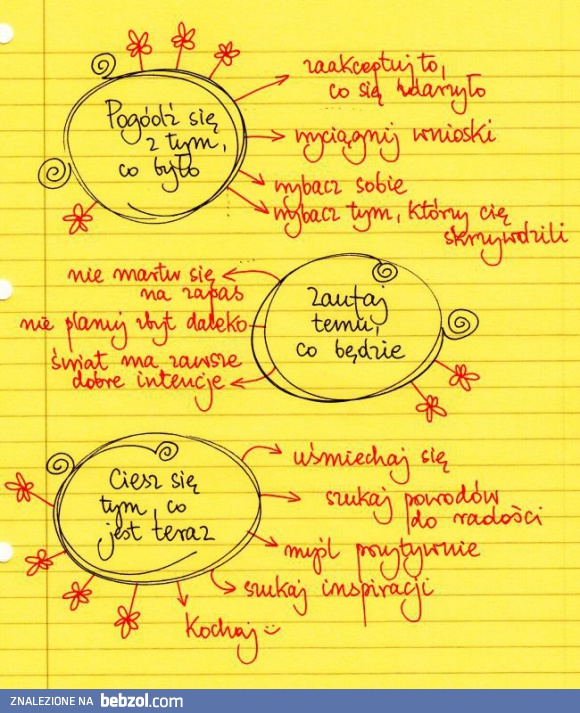 Pogódź się
z tym,
co było
zaakceptuj to,
co się wdarzyło
wyciągnij wnioski
wybacz sobie
wybacz tym, którzy cię
skrzywdzili
Zaufaj
temu,
co będzie
nie martw się
na zapas
nie planuj zbyt daleko
świat ma zawsze
dobre intencje
Ciesz się
tym, co
jest teraz
uśmiechaj się
szukaj powodów
do radości
myśl pozytywnie
szukaj inspiracji
Kochaj :)
ZNALEZIONE NA bebzol.com